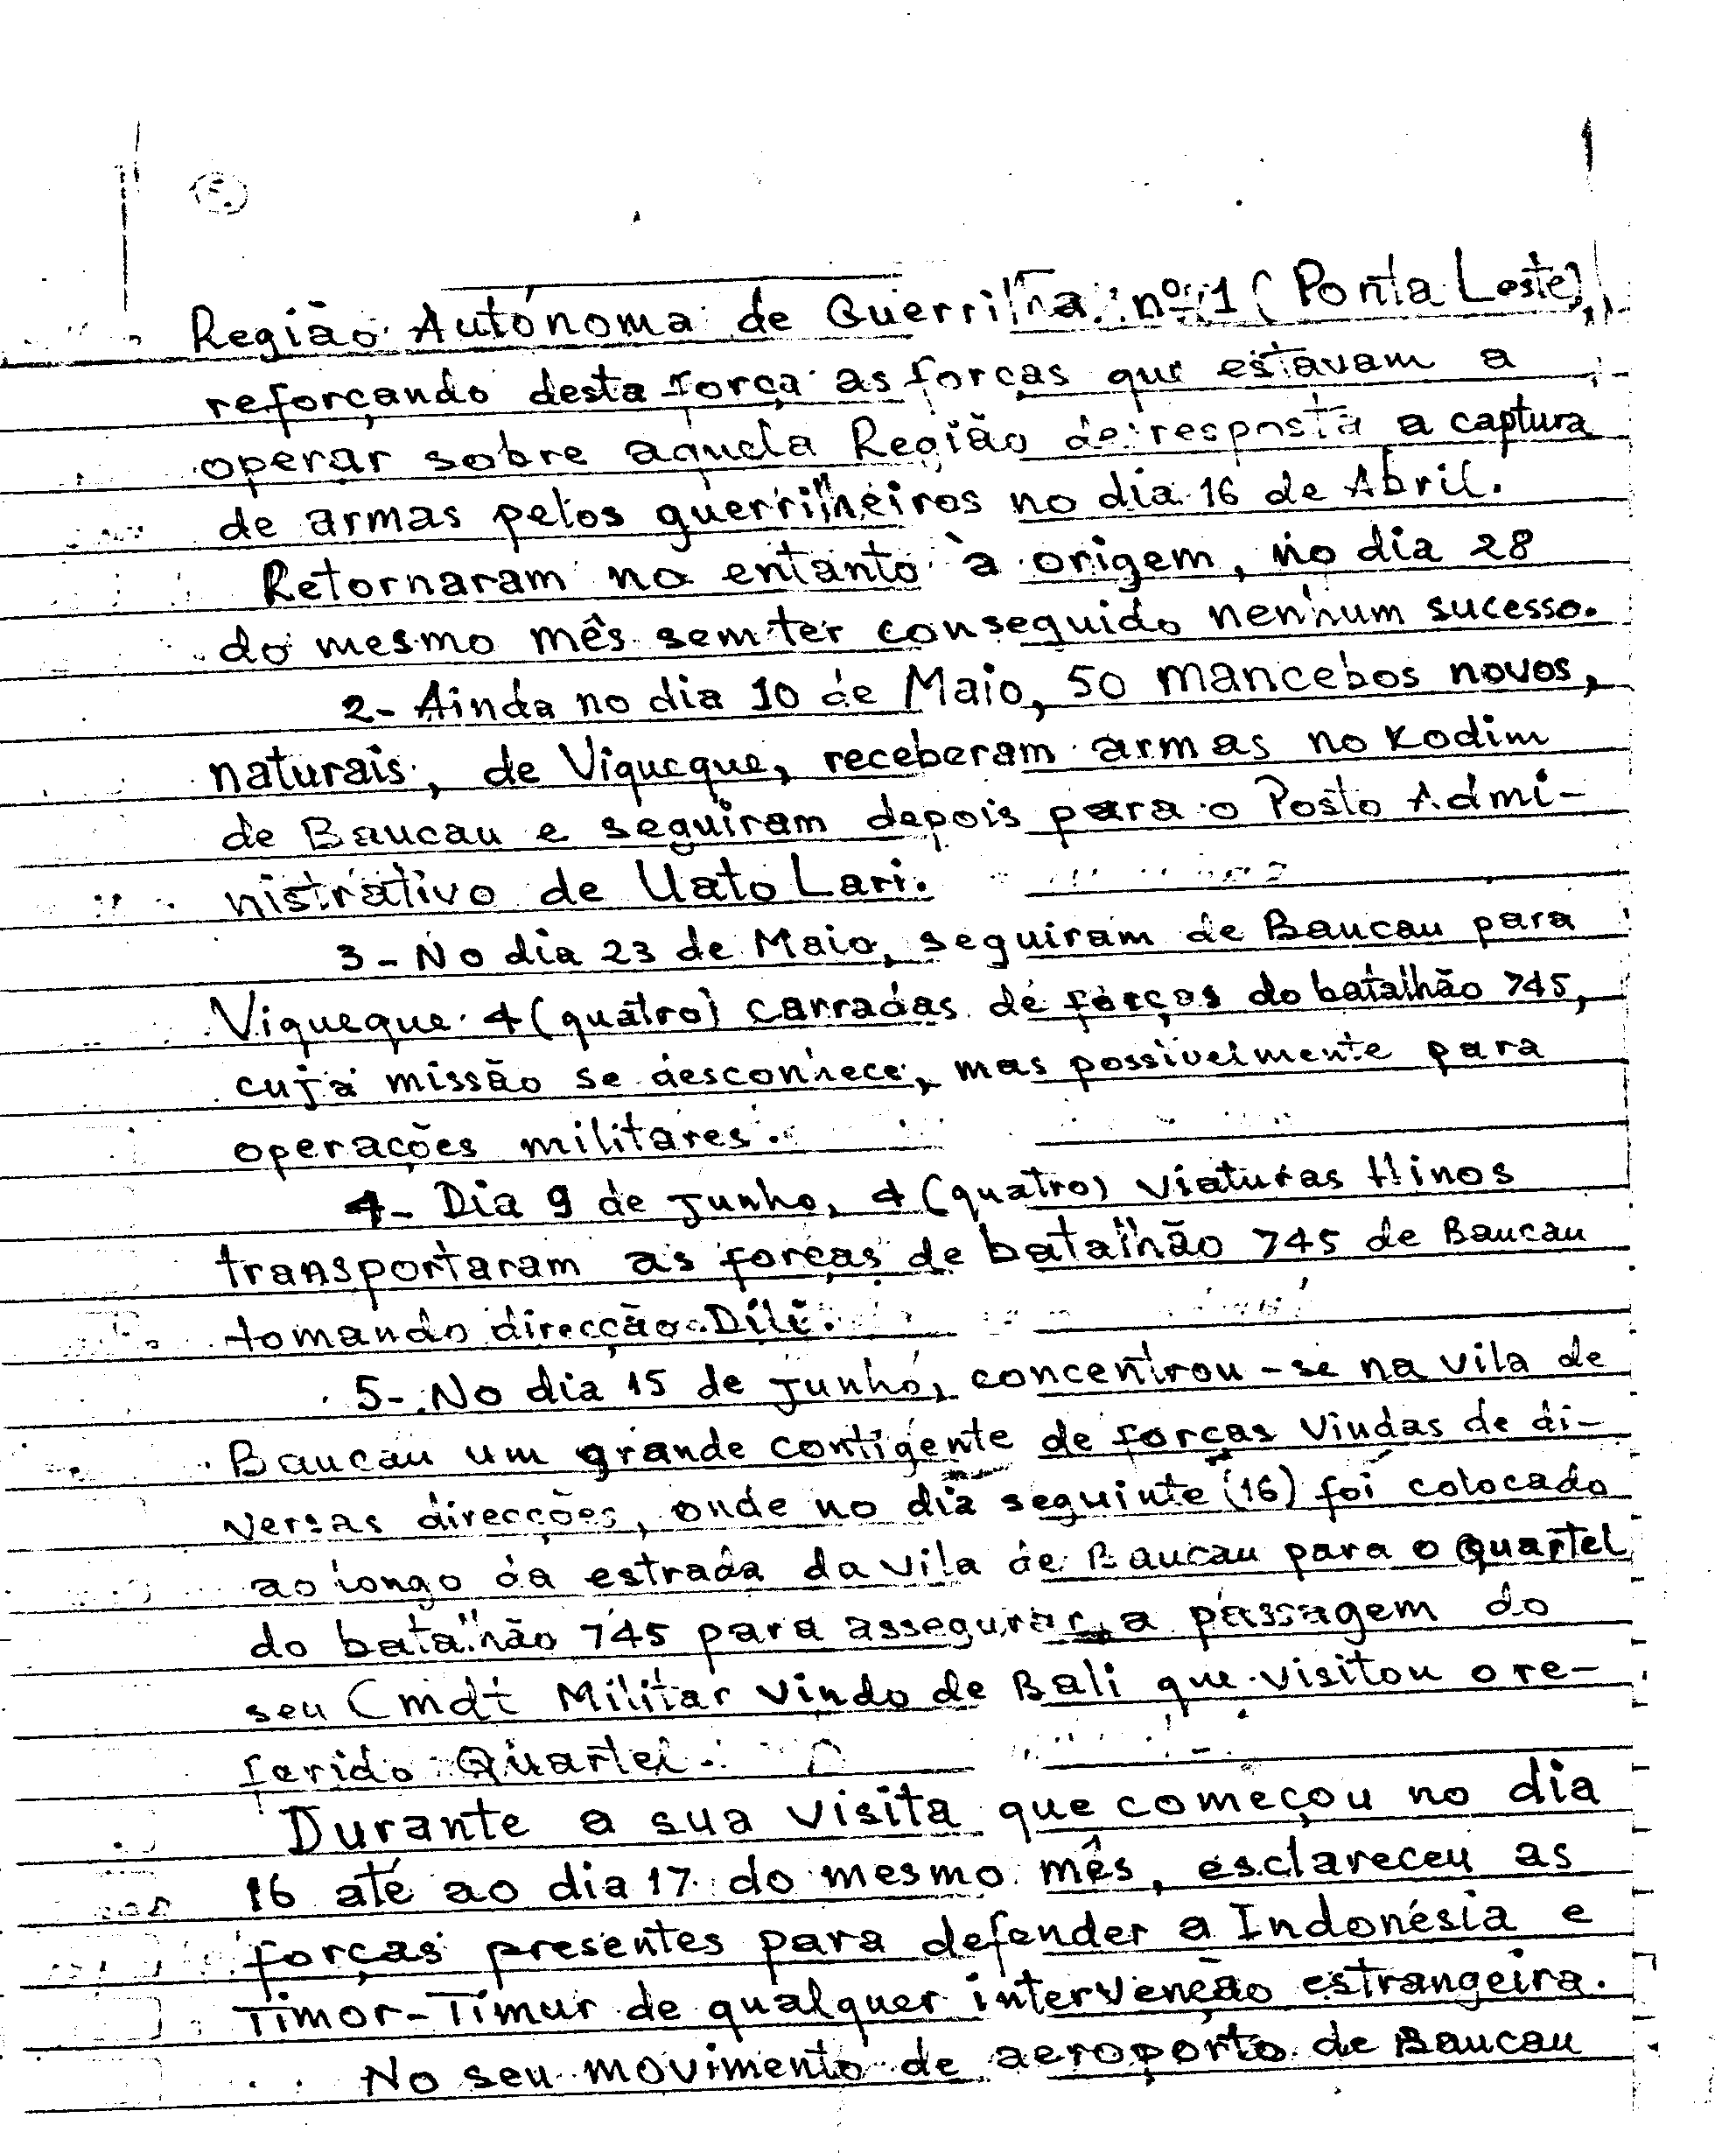 5.
Região Autónoma de Guerrilha nº 1 (Ponta Leste),
reforçando desta força as forças que estavam a
operar sobre aquela Região de resposta a captura
de armas pelos guerrilheiros no dia 16 de Abril.
Retornaram no entanto à origem, no dia 28
do mesmo mês sem ter conseguido nenhum sucesso.
2- Ainda no dia 10 de Maio, 50 mancebos novos,
naturais, de Viqueque, receberam armas no Kodim
de Baucau e seguiram depois para o Posto Admi-
nistrativo de Uato Lari.
3- No dia 23 de Maio, seguiram de Baucau para
Viqueque 4 (quatro) carradas de forças do batalhão 745,
cuja missão se desconhece, mas possivelmente para
operações militares.
4- Dia 9 de Junho, 4 (quatro) viaturas Hinos
transportaram as forças de batalhão 745 de Baucau
tomando direcção Dili.
5- No dia 15 de Junho, concentrou-se na vila de
Baucau um grande contigente de forças vindas de di-
versas direcções, onde no dia seguinte (16) foi colocado
ao longo da estrada da vila de Baucau para o Quartel
do batalhão 745 para assegurar a passagem do
seu Cmdt Militar vindo de Bali que visitou o re-
ferido Quartel.
Durante a sua visita que começou no dia
16 até ao dia 17 do mesmo mês, esclareceu as
forças presentes para defender a Indonésia e
Timor-Timur de qualquer intervenção estrangeira.
No seu movimento de aeroporto de Baucau